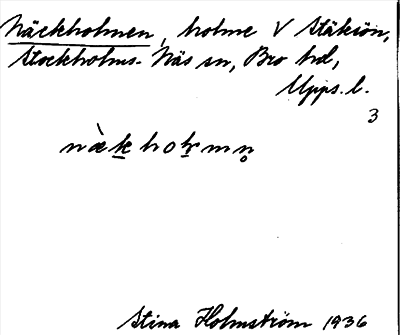 Näckholmen, holme V Stäksön,
Stockholms-Näs sn, Bro hd,
Upps. l.
3
nä̀k̲hoḷmn̥
Stina Holmström 1936